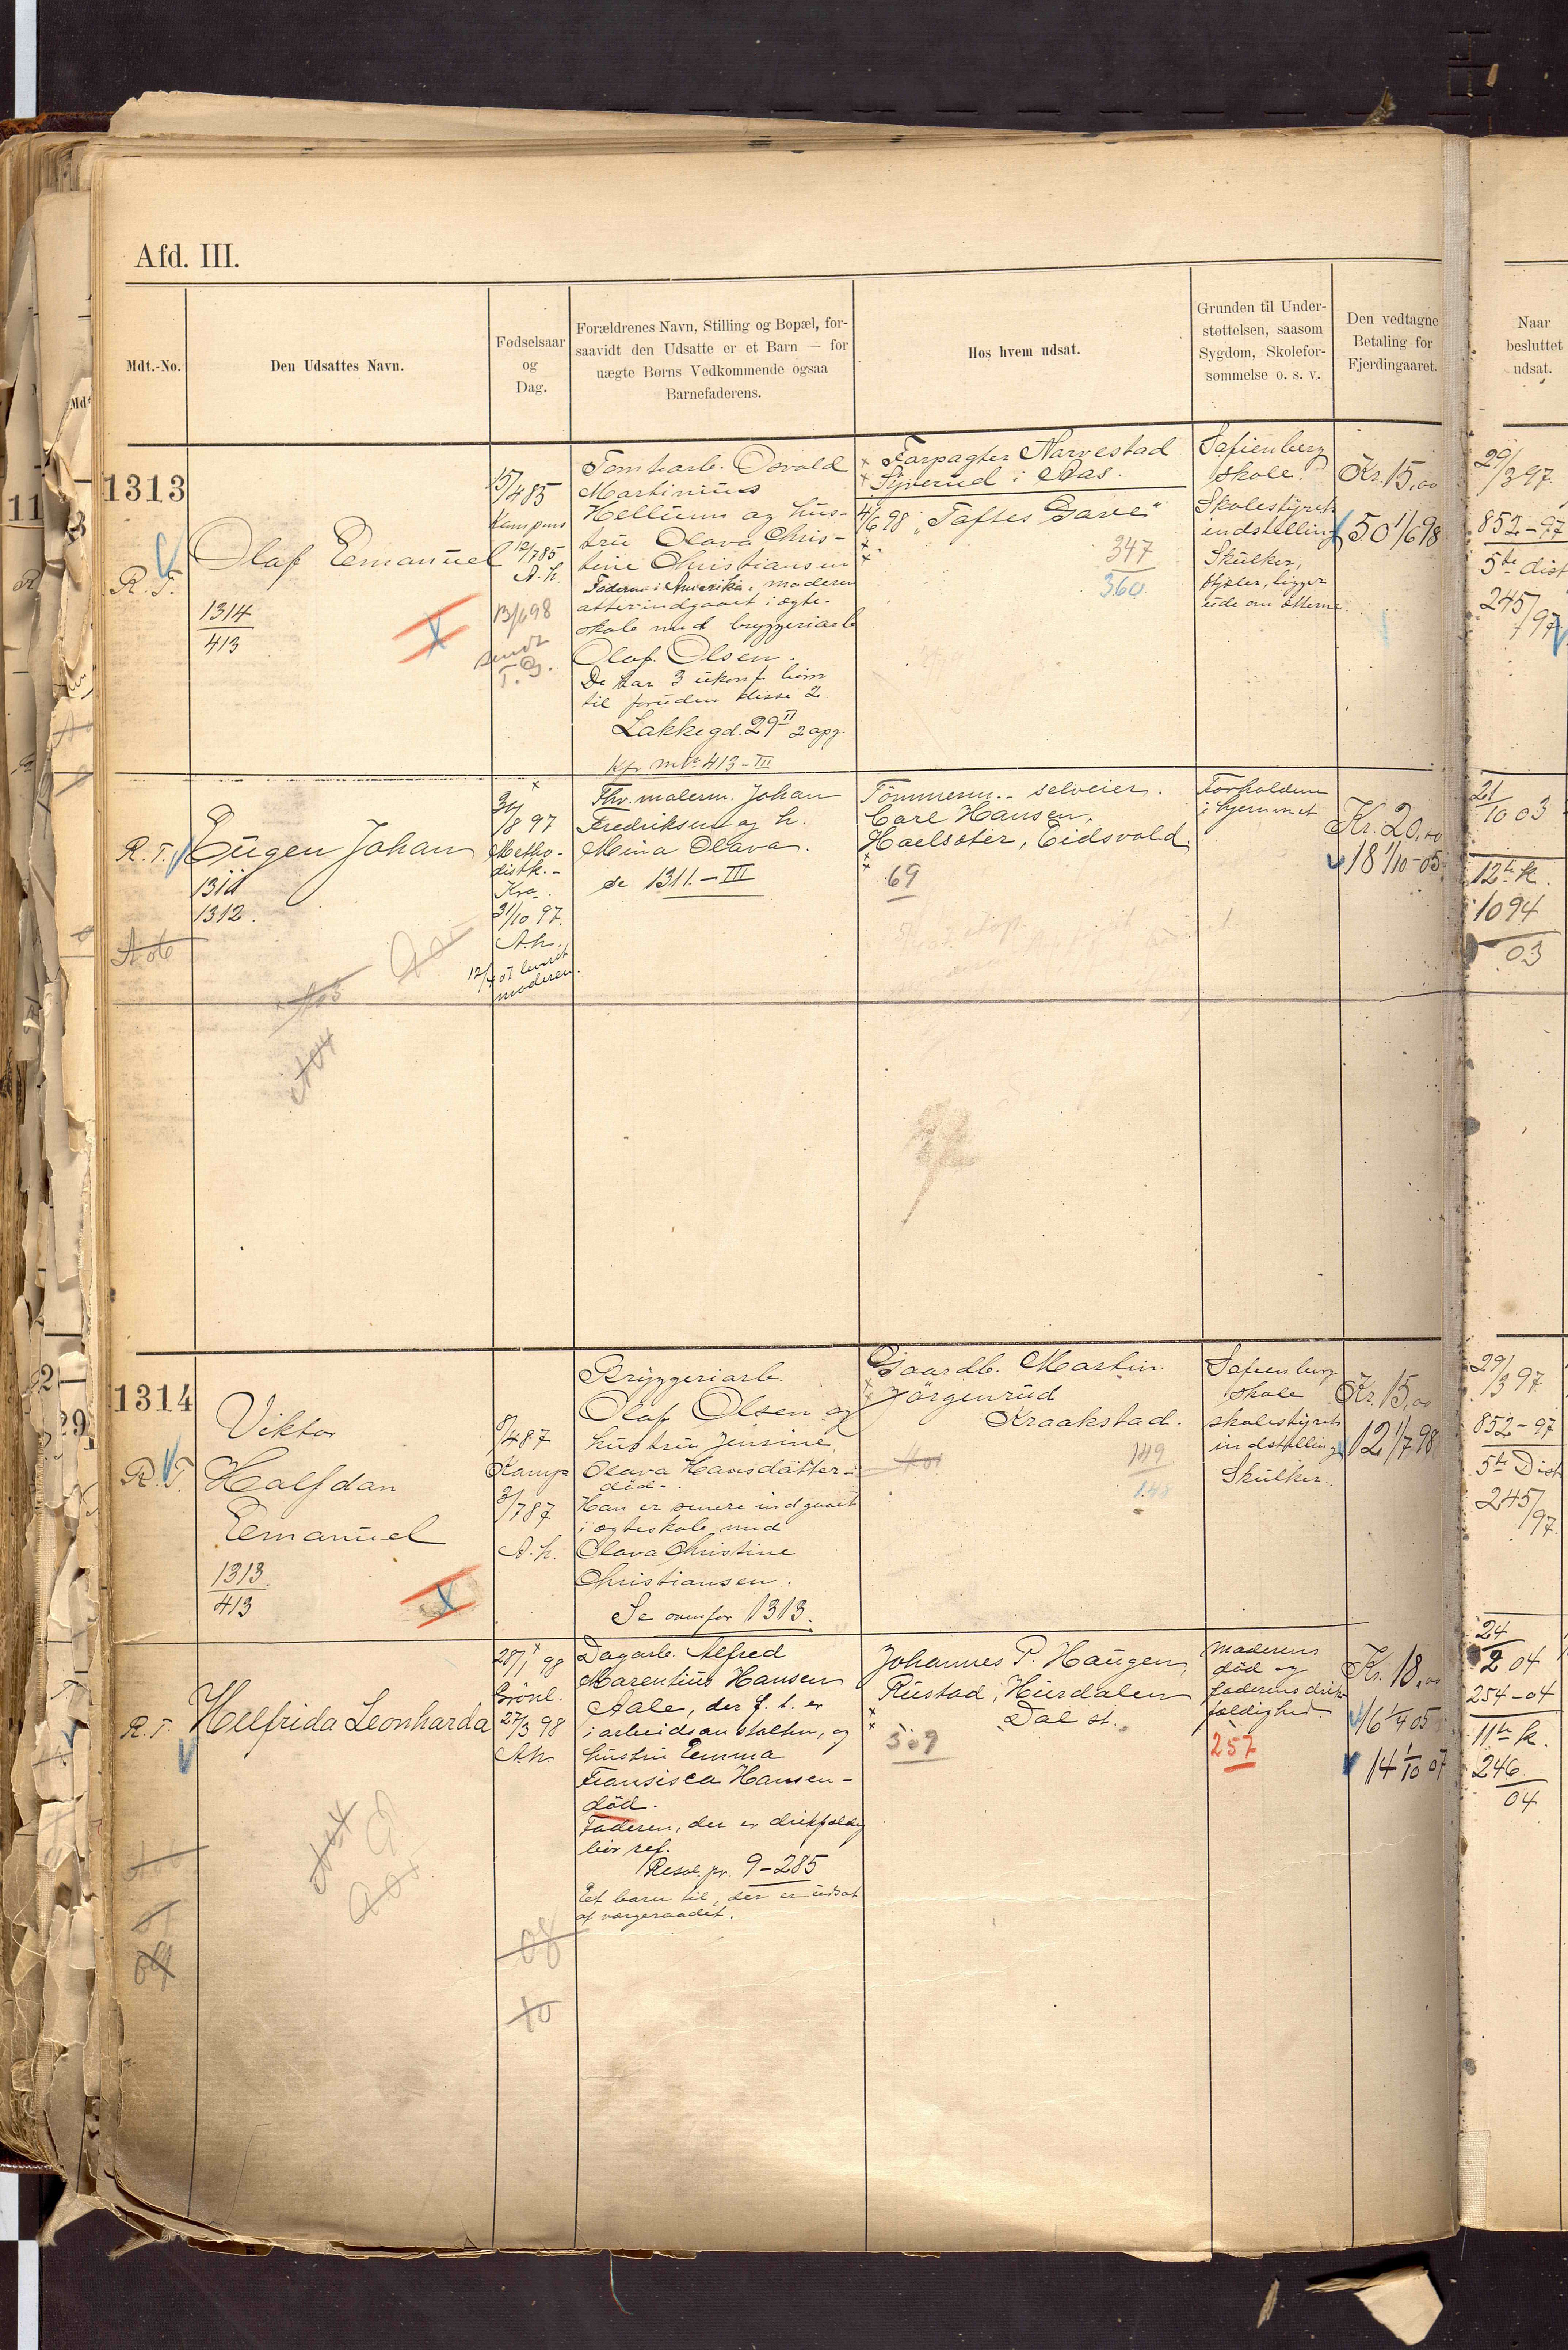 Afd. III.
Mdt.-No.
Den Udsattes Navn.
Fødselsaar
og
Dag.
Forældrenes Navn, Stilling og Bopæl, for-
saavidt den Udsatte er et Barn — for
uægte Børns Vedkommende ogsaa
Barnefaderens.
Hos hvem udsat.
Grunden til Under-
støttelsen, saasom
Sygdom, Skolefor-
sømmelse o. s. v.
Den vedtagne
Betaling for
Fjerdingaaret.
Naar
besluttet
udsat.
1313
R. T.
Olaf Emanuel
1314
413
15/4 85
Kampens
12/7 85
A. h.
13/6 98
sendt
T. G.
Tomtearb. Osvald
Martinius
Hellum og hus-
tru Olava Chris-
tine Christiansen
Faderen i Amerika, moderen
atter indgaaet i ægte-
skab med bryggeriarb
Olaf Olsen.
De har 3 ukonf. børn
til foruden disse 2
Lakkegd. 29 II 2 opg.
Kfr. mt. 413 - III
Forpagter Narvestad
i Aas.
4/6 98 "Toftes Gave"
347
360
Sofienberg
skole.
Skolestyrets
indstilling
Skulker,
stjæler, ligger
ude om nætterne.
Kr. 15,00
50 1/6 98
29/3 97
852-97
5te dist
245/97
R. T.
Eugen Johan
1311
1312.
30/8 97
Metho-
distk. -
Kra.
31/10 97.
A. h.
12/ 07 leveret
moderen.
Fhv. malerm. Johan
Fredriksen og h.
Mina Olava.
se 1311. - III
Tömmerm. - selveier.
Carl Hansen,
Hoelsæter, Eidsvold.
69
Forholdene
i hjemmet
Kr. 20,00
18 1/10-05
21/10 03
12te k.
1094
03
1314
R. T.
Viktor
Halfdan
Emanuel
1313.
413
8/4 87
Kamp
3/7 87
A. h.
Bryggeriarb.
Olaf Olsen og
hustru Jensine
Olava Hansdatter -
död -.
Han er senere indgaaet
i ægteskab med
Olava Christine
Christiansen.
Se ovenfor 1313.
Gaardb. Martin
Jörgenrud
Kraakstad.
149
148
Sofienberg
skole
skolestyrets
indstilling
Skulker.
Kr. 15,00
12 1/7 98
29/3 97
852-97
5te Dist
245/97
R. T.
Helfrida Leonharda
28/1 98
Grönl.
27/3 98
A.h.
Dagarb. Alfred
Marentius Hansen
Aale, der f. t. er
i arbeidsanstalten, og
hustru Emma
Fransisca Hansen -
död.
Faderen, der er drikfældig
bör ref.
Resol. pr. 9-285
Et barn til, der er udsat
af værgeraadet.
08
10
Johannes P. Haugen,
Rustad, Hurdalen
Dal st.
509
Moderens
död og
faderens drik-
fældighed
257
Kr. 18,00
16 1/4 05
14 1/10 07
24/2 04
254-04
11te k.
246
04